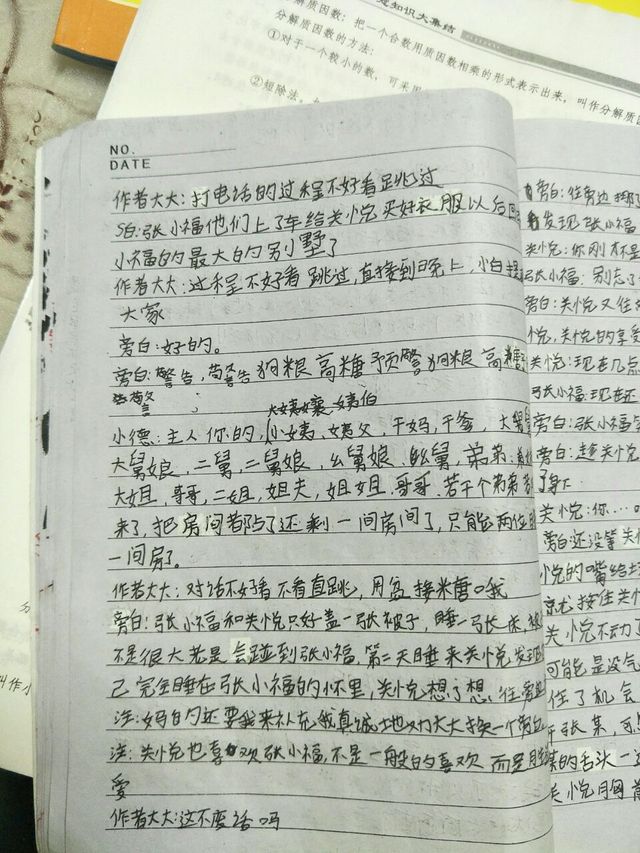 意知识大集结
解质因数：把一个合数用质因数相乘的形式表示出来，叫作分解质因
分解质因数的方法：
①对于一个较小的数，可采用
②短除法，
NO.
DATE
作者大大：打电话的过程不好看跳过
旁白：张小福他们上了车给关悦买好衣服以后回
小福的最大的别墅了
作者大大：过程不好看跳过，直接到晚上，小白
大家
旁白：好的。
旁白：警告，警告狗粮高糖预警狗粮高糖
警告
大姨嬢 姨伯
小德：主人你的，小姨，姨父，干妈，干爹，大舅
大舅娘，二舅，二舅娘，幺舅娘，幺舅，弟弟，
大姐，哥哥，二姐，姐夫，姐姐，哥哥，若干个弟弟
来了，把房间都占了还剩一间房间了，只能两位
一间房了。
作者大大：对话不好看不看直跳，用盆接米唐哦
旁白：张小福和关悦只好盖一张被子，睡一张床，
不是很大老是会碰到张小福，第二天睡来关悦发现
己完全睡在张小福的怀里，关悦想了想，往旁边
注：妈的还要我来补充我真诚地对大大换一个旁白
注：关悦也喜欢张小福，不是一般的喜欢而是
爱
作者大大：这不废话吗
旁白：往旁边挪了
发现张小福
关悦：你刚才不是
张小福：别忘了
旁白：关悦又往
悦，关悦的享受
关悦：现在几点
张小福：现在还
旁白：张小福
旁白：趁关悦
了身下
关悦：你…
旁白还没等关
悦的嘴给堵
就按住关
关悦不动了
可能是没气
住了机会
于张某，可
某的舌头一
关悦胸前
分
叫作